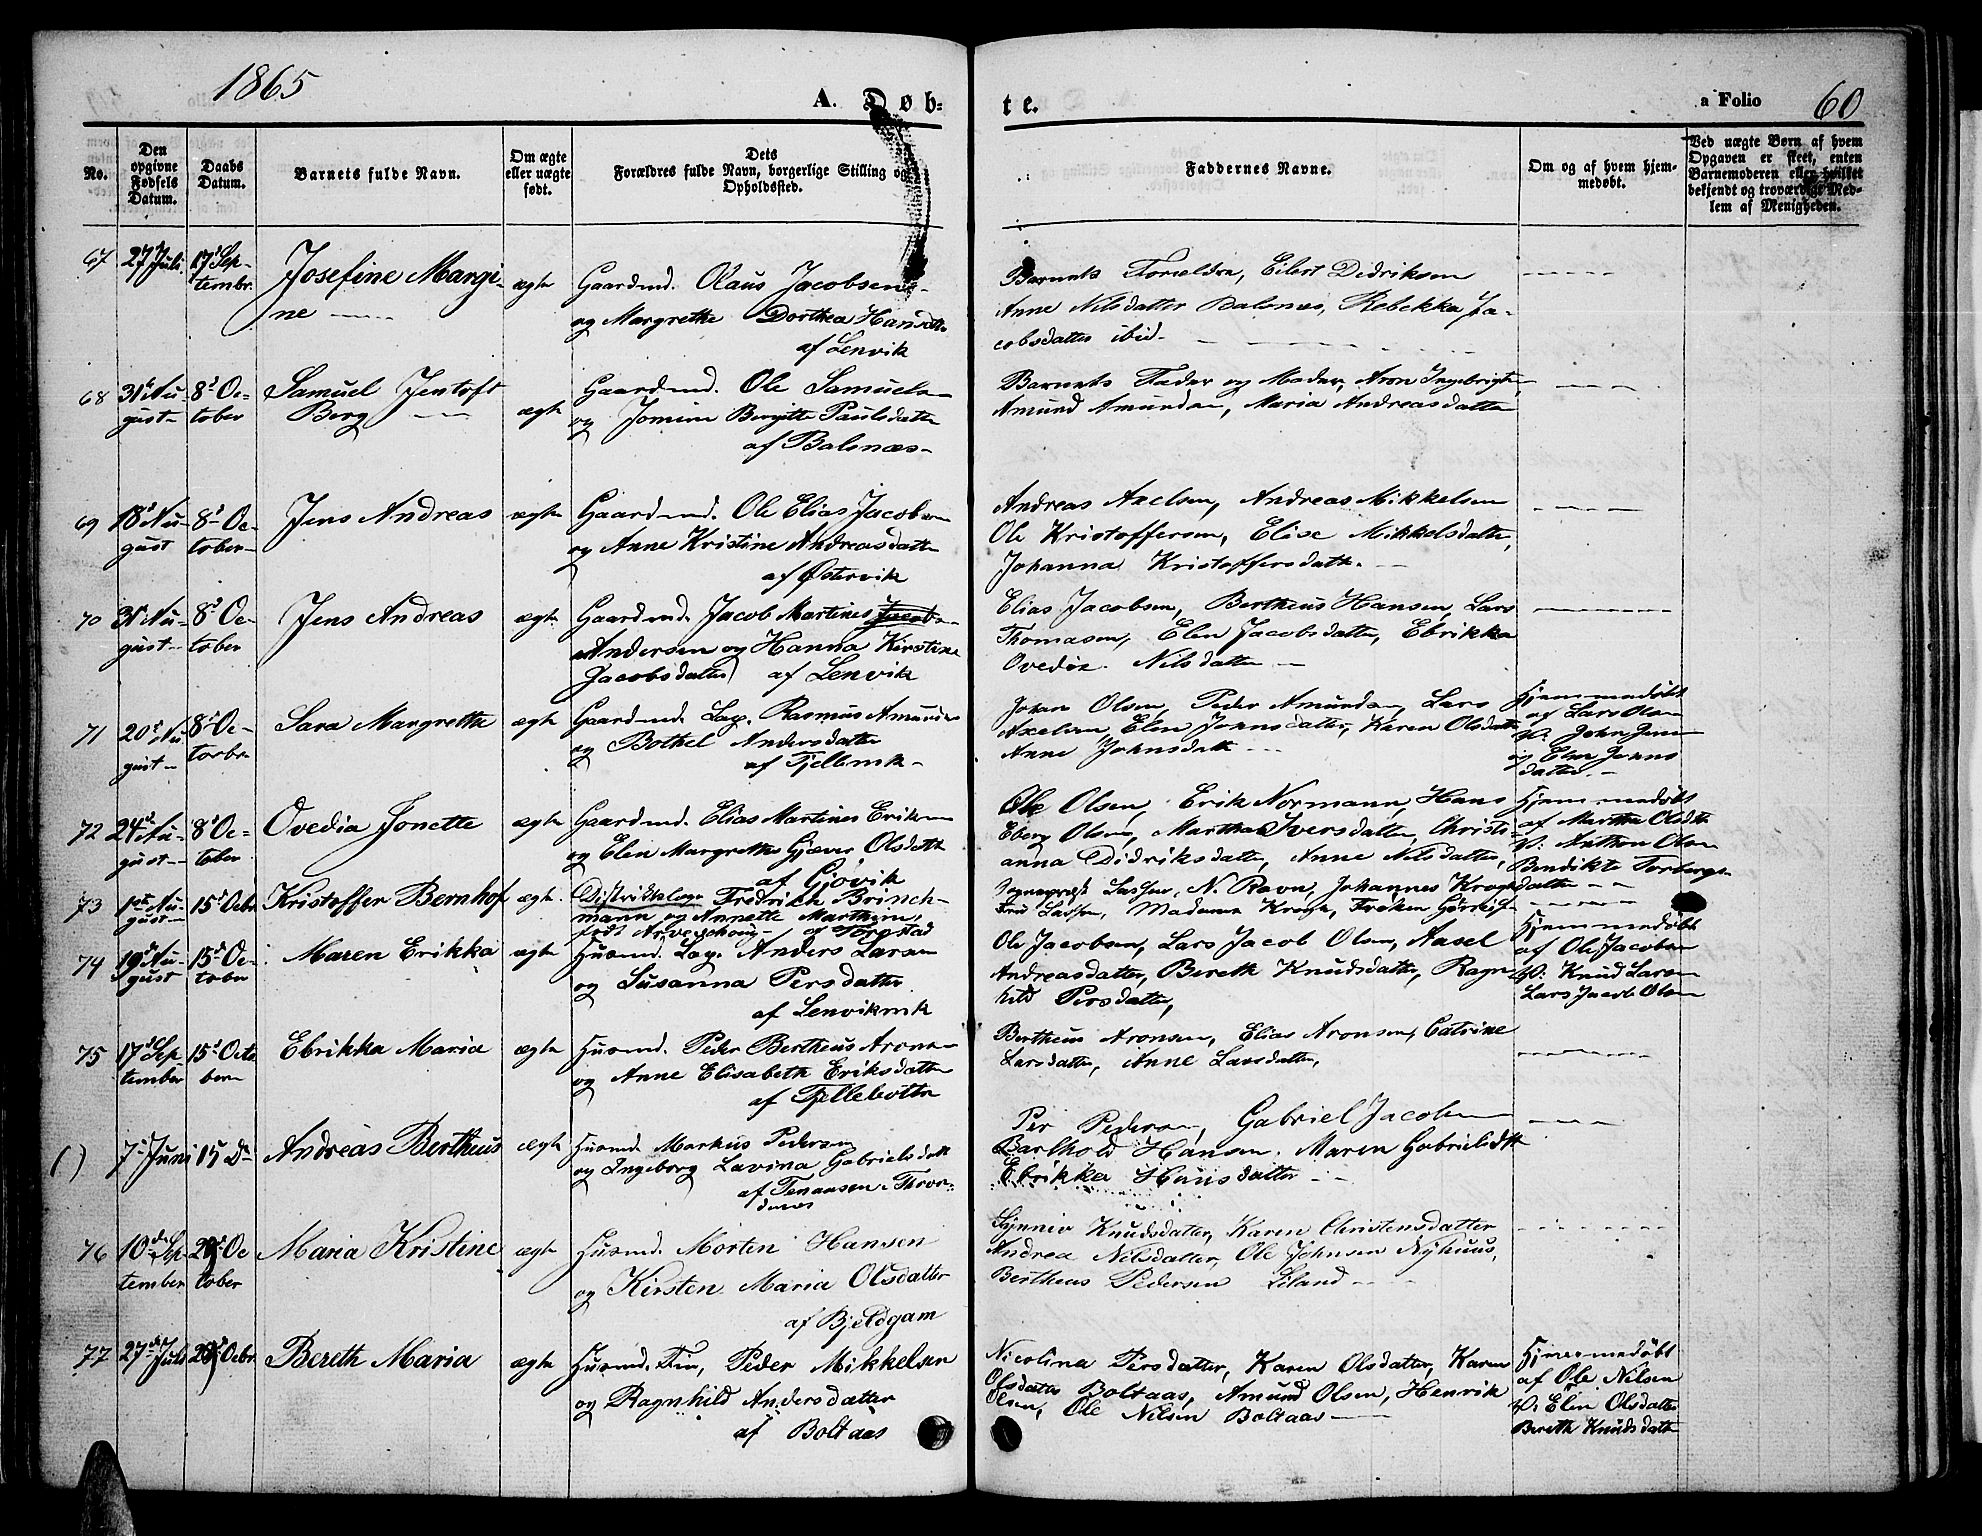 1865
A. Døb-
te.
a Folio 60
No.
Den
opgivne
Fødsels
Datum.
Daabs
Datum.
Barnets fulde Navn.
Om ægte
eller uægte
født.
Dets
Forældres fulde Navn, borgerlige Stilling og
Opholdssted.
Faddernes Navne.
Om og af hvem hjem-
medøbt.
Ved uægte Børn af hvem
Opgaven er skeet, enten
Barnemoderen eller hvilket
bekjendt og troværdigt Med-
lem af Menigheden.
67 27 Juli 17 Sep-
tembr.
Josefine Margi-
ne
ægte
Gaardmd. Olaus Jacobsen
og Margrethe Dorthea Hansdtr
af Lenvik
Barnets Forældre, Eilert Didriksen
Anne Nilsdatter Balsnes, Rebekka Ja-
cobsdatter ibid.
68 31 Au-
gust
8 Oc-
tober
Samuel Jentoft
Berg
ægte
Gaardmd. Ole Samuels
og Jomine Bergitte Paulsdatter
af Balsnæs
Barnets Fader og Moder, Aron Ingebrigts
Amund Amundsen, Maria Andreasdatter
69 18 Au-
gust
8 Oc-
tober
Jens Andreas
ægte
Gaardmd. Ole Elias Jacobsen
og Anne Kristine Andreasdatter
af Østervik
Andreas Axelsen, Andreas Mikkelsen
Ole Kristoffersen, Elise Mikkelsdatter,
Johanna Kristoffersdatter.
70 31 Au-
gust
8 Oc-
tober
Jens Andreas
ægte
Gaardmd. Jacob Martines
Andersen og Hanna Kirstine
Jacobsdatter af Lenvik
Elias Jacobsen, Bertheus Hansen, Lars
Thomasen, Elen Jacobsdatter, Ebrikka
Ovedia Nilsdatter
71 20 Au-
gust
8 Oc-
tober
Sara Margrethe
ægte
Gaardmd. Lap. Rasmus Amundsen
og Bothel Andersdatter
Johan Olsen, Peder Amundsen, Lars
Axelsen, Elen Johnsdatter, Karen Olsdatter
Anne Johnsdatter
Hjemmedøbt
af Lars Olsen
V. John Jensen
og Elen Jonns
datter
72 24 Au-
gust
8 Oc-
tober
Ovedia Jonette
ægte
Gaardmd. Elias Martines Eriksen
og Elen Margrethe Gjæver Olsdatter
af Gjøvik
Ole Olsen, Erik Normann, Hans
Eberg Olsen, Martha Iversdatter, Christi-
anna Didriksdatter, Anne Nilsdatter,
Hjemmedøbt
af Martha Olsdtr
V. Anthon Olsen
Bendikte Torbergs-
datter
73 1ste Au-
gust
15 Octbr
Kristoffer Bernhof
ægte.
Distriktslæge Fredrich Brinch-
mann og Annette Marthine,
født Arveschoug af Torestad
Sogneprest Lassen, N. Ravn, Johannes Krogh
Fru Lassen, Madame Krogh, Frøken
74 19 Au-
gust
15 Oc-
tober
Maren Erikka
ægte
Husmd. Lap. Anders Larsen
og Susanna Persdatter
af Lenvikmk
Ole Jacobsen, Lars Jacob Olsen, Aasel
Andreasdatter, Bereth Knudsdatter, Ragn-
hild Persdatter,
Hjemmedøbt
af Ole Jacobsen
V: Knud Larsen
Lars Jacob Olsen
75 17 Sep
tember
15 Octo
bern
Ebrikka Maria
ægte
Husmd. Peder Bertheus Arons
og Anne Elisabeth Eriksdatter
af Fjellebotten
Bertheus Aronsen, Elias Aronsen, Catrine
Larsdatter, Anne Larsdatter,
( ) 7 Juni 15 Do
Andreas Bertheus
ægte
Husmd. Markus Pedersen
og Ingeborg Lavina Gabrielsdatter
Per Pedersen, Gabriel Jacobsen
Barthold Hansen, Maren Gabrielsdtr
Ebrikka Hansdatter
76 10 Sep
tember
29 Oc
tober
Maria Kristine
ægte
Husmd. Morten Hansen
og Kirsten Maria Olsdatter
af Bjeldgam
Synniva Knudsdatter, Karen Christensdatter
Andrea Nilsdatter, Ole Johnsen Nyhuus,
Bertheus Pedersen Leland
77 27 Juli 29 Octbr.
Bereth Maria
ægte
Husmd. Fin, Peder Mikkelsen
og Ragnhild Andersdatter
af Boltaas
Nicolina Persdatter, Karen Olsdatter, Karen
Olsdatter Boltaas, Amund Olsen, Henrik
Olsen, Ole Nilsen Boltaas
Hjemmedøbt
af Ole Nilsen
V. Elen Olsdatter
Bereth Knudsdatter